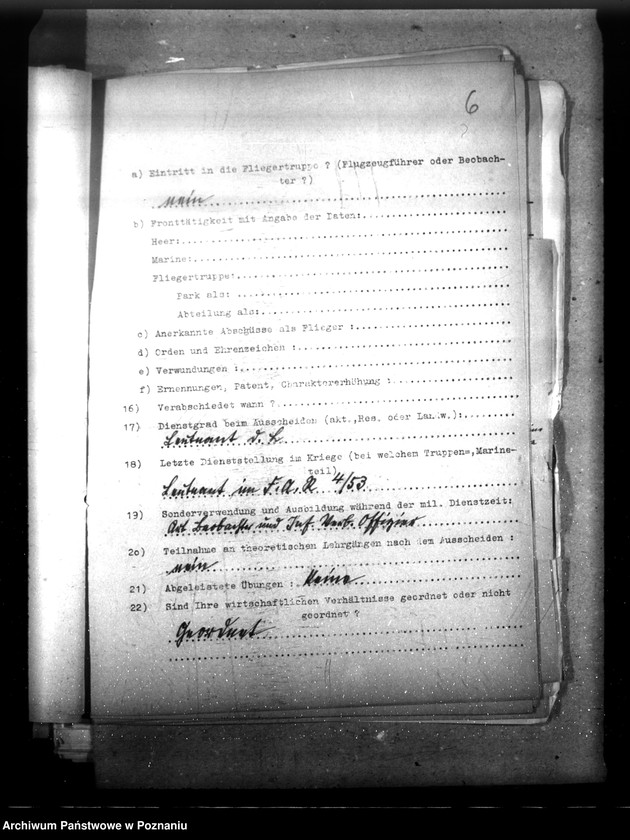 6
a) Eintritt in die Fliegertruppe ? (Flugzeugführer oder Beobach-
ter ?)
nein
b) Fronttätigkeit mit Angabe der Daten:
Heer:
Marine:
Fliegertruppe:
Park als:
Abteilung als:
c) Anerkannte Abschüsse als Flieger :
d) Orden und Ehrenzeichen :
e) Verwundungen :
f) Ernennungen, Patent, Charaktererhöhung :
16) Verabschiedet wann ?
17) Dienstgrad beim Ausscheiden (akt.,Res. oder Landw.):
Leutnant d. L
18) Letzte Dienststellung im Kriege (bei welchem Truppen=,Marine-
teil)
Leutnant im F.A.R 4/53
19) Sonderverwendung und Ausbildung während der mil. Dienstzeit:
Art Beobachter und Inf. Verb. Offizier
2o) Teilnahme an theoretischen Lehrgängen nach dem Ausscheiden :
nein
21) Abgeleistete Übungen : Keine
22) Sind Ihre wirtschaftlichen Verhältnisse geordnet oder nicht
geordnet ?
Geordnet
Archiwum Państwowe w Poznaniu